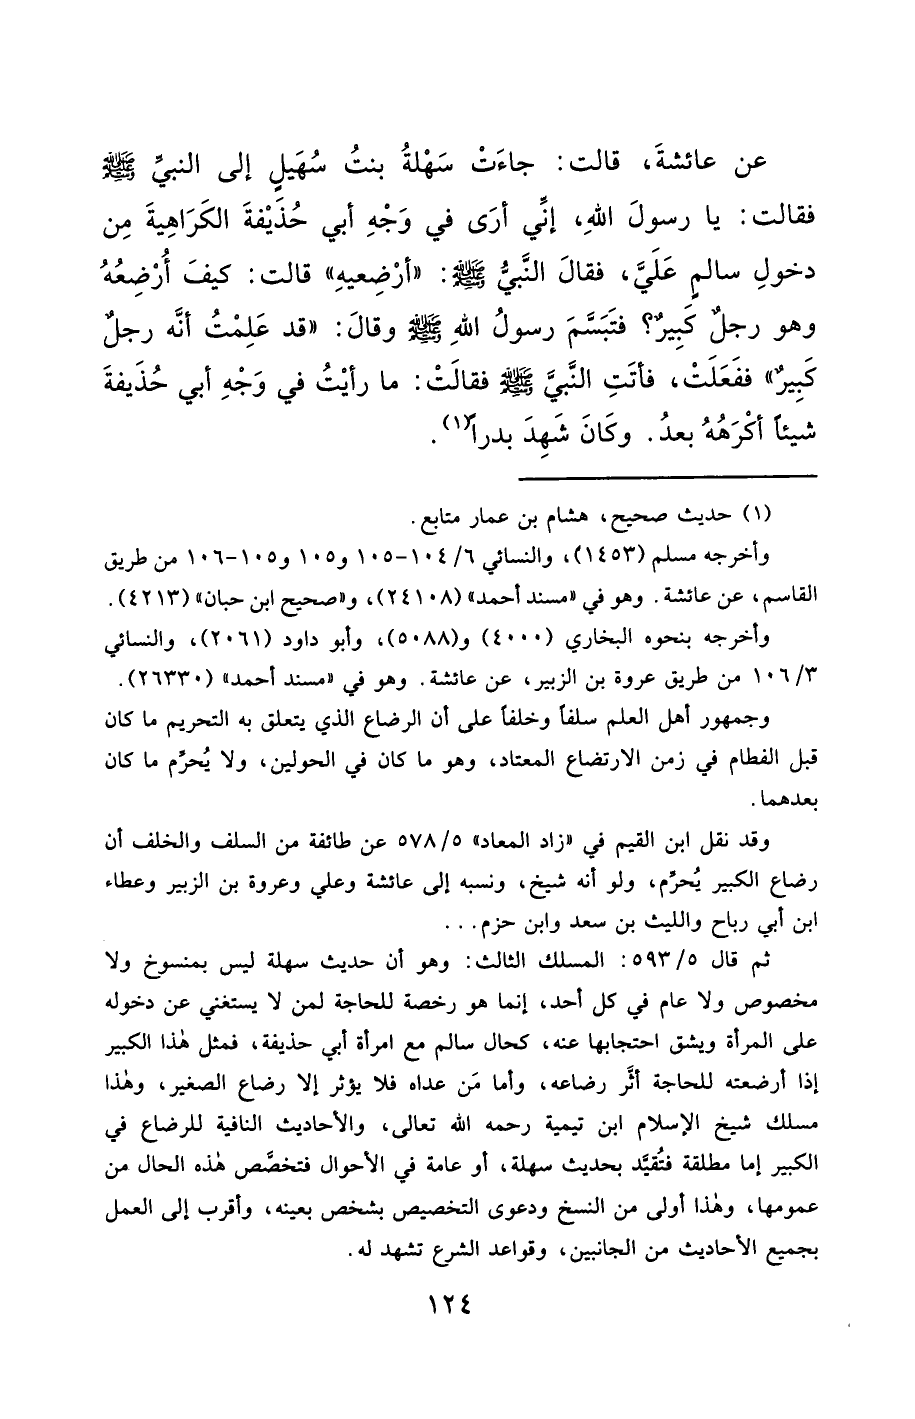 عن عائشةَ، قالت: جاءَتْ سَهْلةُ بنتُ سُهَيلٍ إلى النبيِّ ﷺ
فقالت: يا رسولَ اللهِ، إنِّي أرَى في وَجْهِ أبي حُذَيْفةَ الكَرَاهِيةَ مِن
دخولِ سالمٍ عَلَيَّ، فقالَ النَّبيُّ ﷺ: «أرْضِعيهِ» قالت: كيفَ أُرْضِعُهُ
وهو رجلٌ كَبِيرٌ؟ فتَبَسَّمَ رسولُ اللهِ ﷺ وقالَ: «قد عَلِمْتُ أنَّه رجلٌ
كَبِيرٌ» ففَعَلَتْ، فأتَتِ النَّبيَّ ﷺ فقالَتْ: ما رأيْتُ في وَجْهِ أبي حُذَيفةَ
شيئاً أكْرَهُهُ بعدُ. وكَانَ شَهِدَ بدراً(١).
(١) حديث صحيح، هشام بن عمار متابع.
وأخرجه مسلم (١٤٥٣)، والنسائي ٦/ ١٠٤-١٠٥ و١٠٥ و١٠٥-١٠٦ من طريق
القاسم، عن عائشة. وهو في «مسند أحمد» (٢٤١٠٨)، و«صحيح ابن حبان» (٤٢١٣).
وأخرجه بنحوه البخاري (٤٠٠٠) و(٥٠٨٨)، وأبو داود (٢٠٦١)، والنسائي
٣/ ١٠٦ من طريق عروة بن الزبير، عن عائشة. وهو في «مسند أحمد» (٢٦٣٣٠).
وجمهور أهل العلم سلفاً وخلفاً على أن الرضاع الذي يتعلق به التحريم ما كان
قبل الفطام في زمن الارتضاع المعتاد، وهو ما كان في الحولين، ولا يُحرِّم ما كان
بعدهما.
وقد نقل ابن القيم في «زاد المعاد» ٥/ ٥٧٨ عن طائفة من السلف والخلف أن
رضاع الكبير يُحرِّم، ولو أنه شيخ، ونسبه إلى عائشة وعلي وعروة بن الزبير وعطاء
ابن أبي رباح والليث بن سعد وابن حزم...
ثم قال ٥/ ٥٩٣: المسلك الثالث: وهو أن حديث سهلة ليس بمنسوخ ولا
مخصوص ولا عام في كل أحد، إنما هو رخصة للحاجة لمن لا يستغني عن دخوله
على المرأة ويشق احتجابها عنه، كحال سالم مع امرأة أبي حذيفة، فمثل هٰذا الكبير
إذا أرضعته للحاجة أثَّر رضاعه، وأما مَن عداه فلا يؤثر إلا رضاع الصغير، وهٰذا
مسلك شيخ الإسلام ابن تيمية رحمه الله تعالى، والأحاديث النافية للرضاع في
الكبير إما مطلقة فتُقيَّد بحديث سهلة، أو عامة في الأحوال فتخصَّص هٰذه الحال من
عمومها، وهٰذا أولى من النسخ ودعوى التخصيص بشخص بعينه، وأقرب إلى العمل
بجميع الأحاديث من الجانبين، وقواعد الشرع تشهد له.
١٢٤